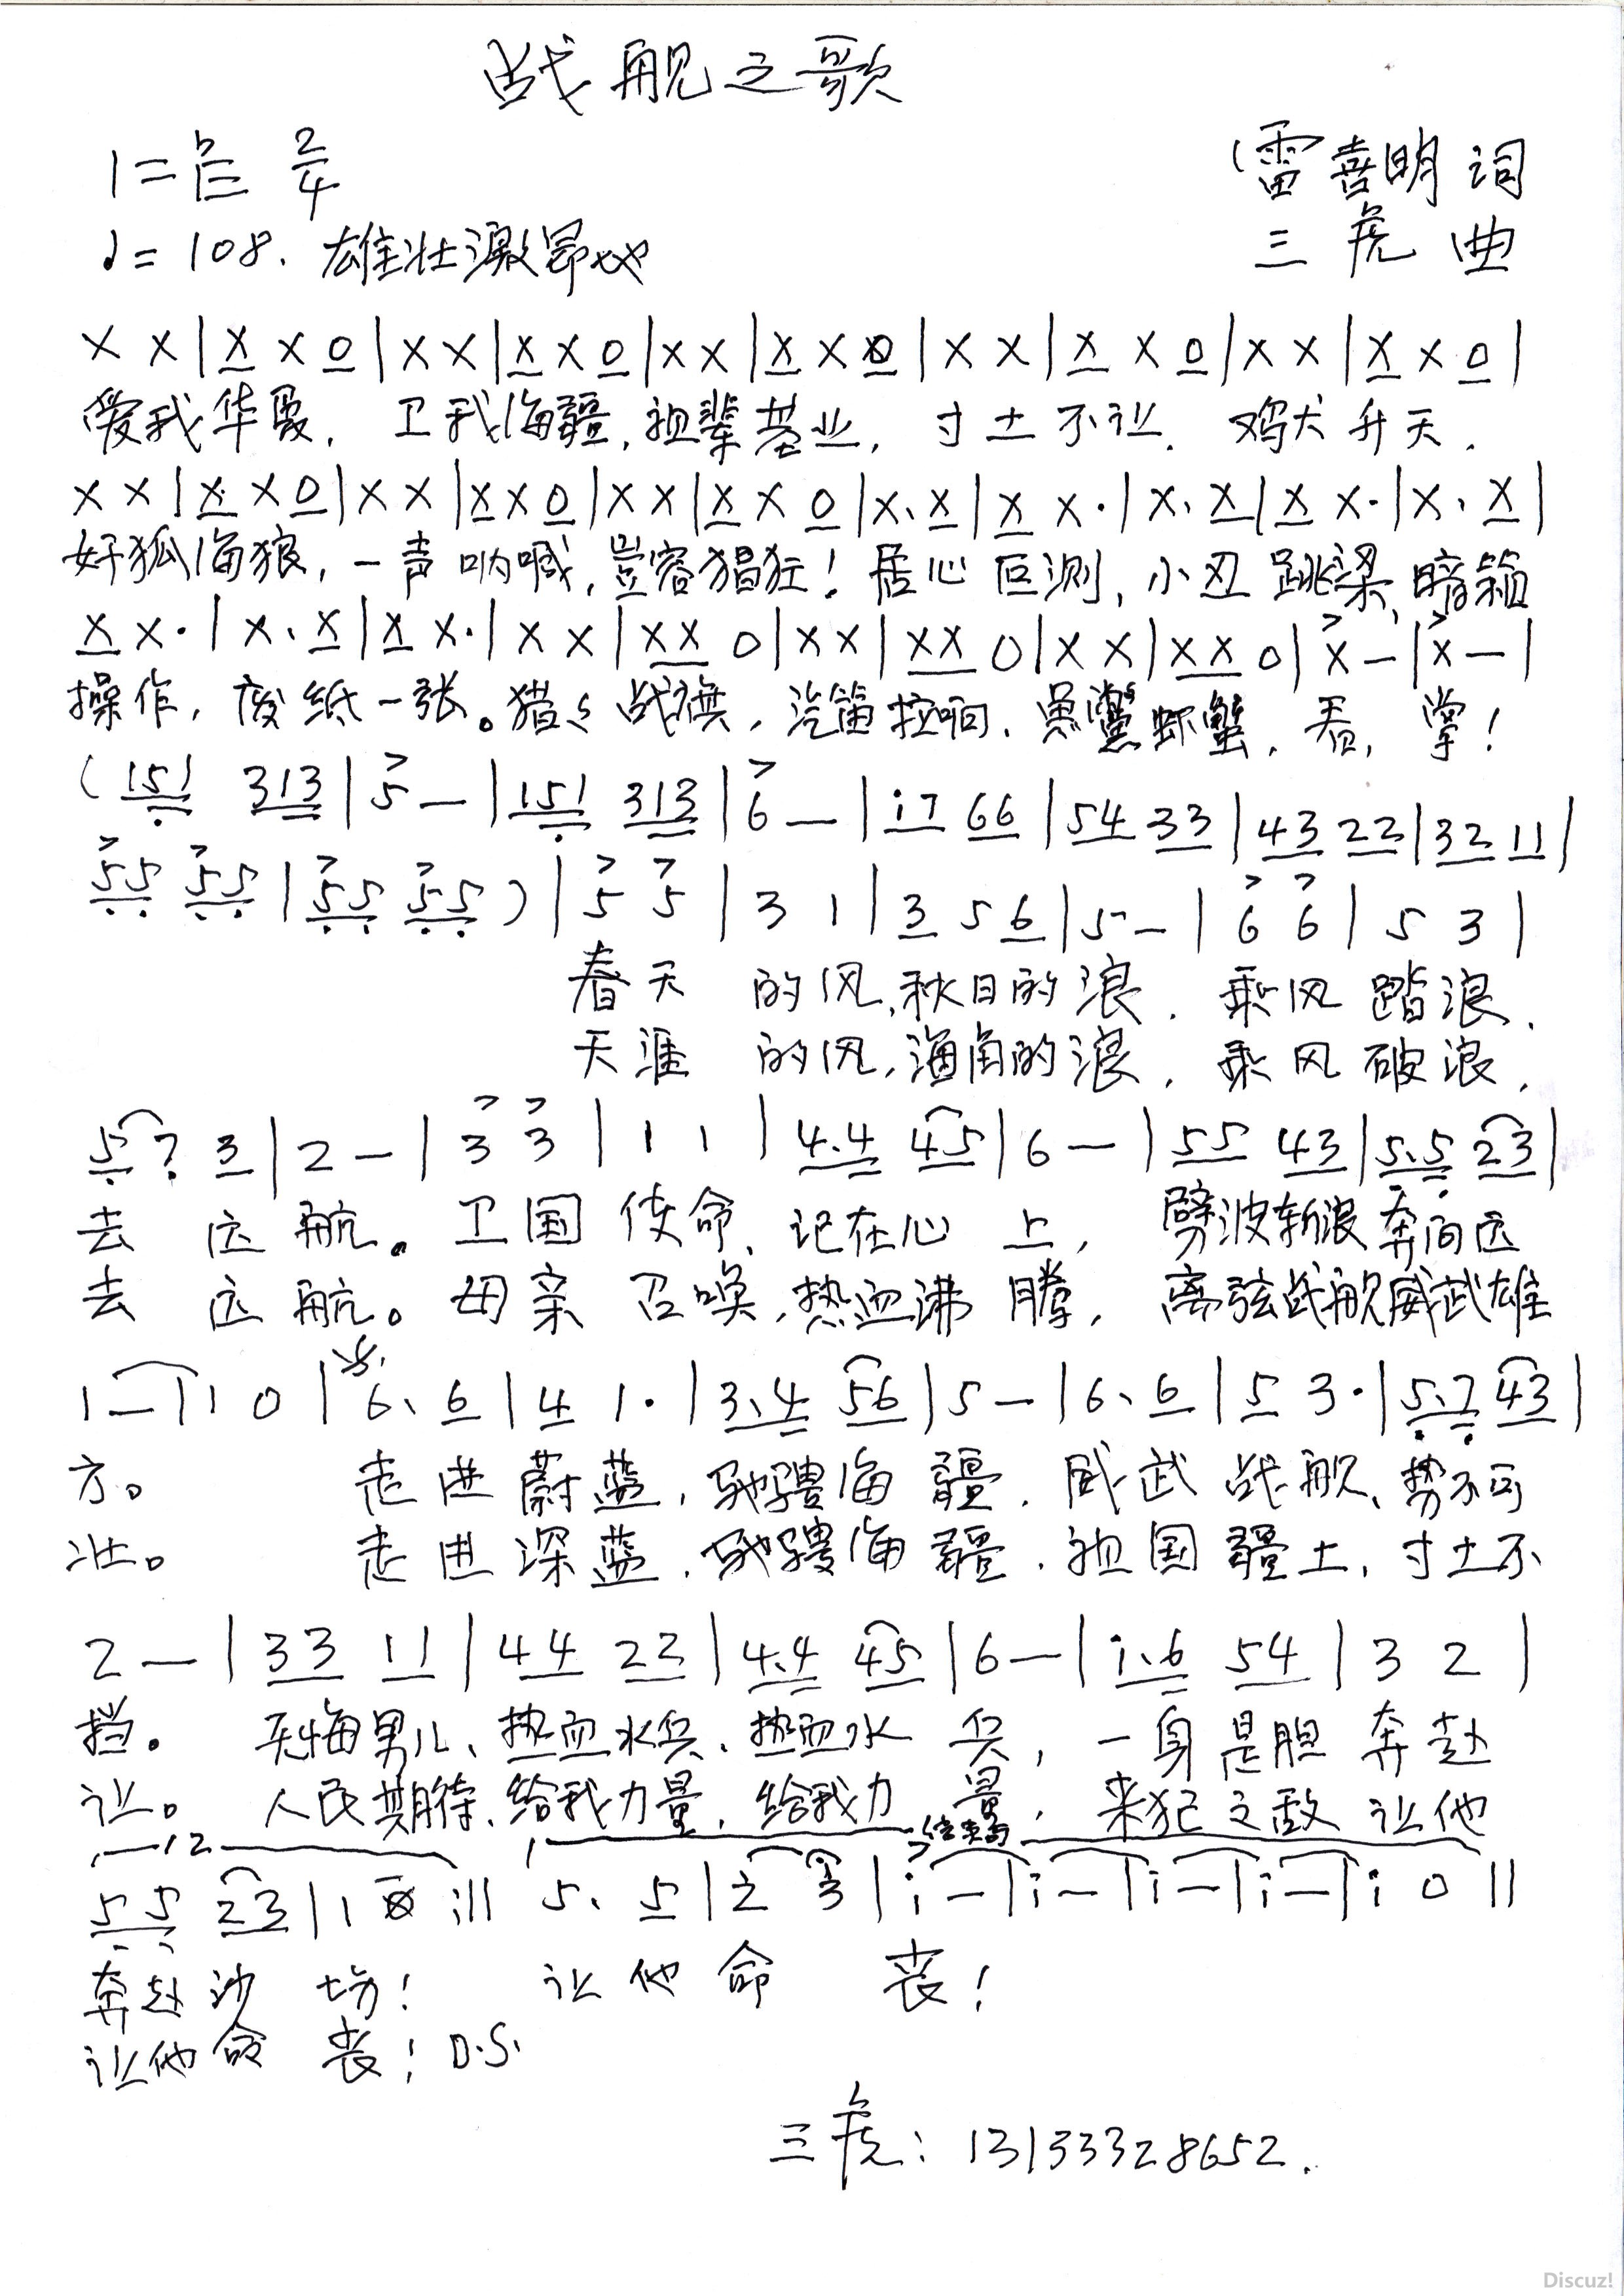 战舰之歌
1=ᵇE 2/4
(雷喜明 词
♩=108. 雄壮激昂地
三虎 曲
X X | X X 0 | X X | X X 0 | X X | X X 0 | X X | X X 0 | X X | X X 0 |
爱我华夏, 卫我海疆, 祖辈基业, 寸土不让. 鸡犬升天,
X X | X X 0 | X X | X X 0 | X X | X X 0 | X. X | X X. | X. X | X X. | X. X |
奸狐海狼, 一声呐喊, 岂容猖狂! 居心叵测, 小丑跳梁, 暗箱
X X. | X. X | X X. | X X | X X 0 | X X | X X 0 | X X | X X 0 | X — | X — |
操作, 废纸一张。猎々战旗, 汽笛拉响. 鱼鳖虾蟹, 看, 掌!
(151 313 | 5 — | 151 313 | 6 — | i7 66 | 54 33 | 43 22 | 32 11 |
55 55 | 55 55 ) | 5 5 | 3 1 | 3 5 6 | 5 — | 6 6 | 5 3 |
春天 的风, 秋日的浪. 乘风踏浪,
天涯 的风, 海角的浪, 乘风破浪,
5 7 3 | 2 — | 3 3 | 1 1 | 4.4 45 | 6 — | 55 43 | 5.5 23 |
去 远航。卫国 使命, 记在心 上, 劈波斩浪奔向远
去 远航。母亲 召唤, 热血沸 腾, 离弦战舰威武雄
1 — | 1 0 | 6. 6 | 4 1. | 3.4 56 | 5 — | 6. 6 | 5 3. | 5.7 43 |
方。 走进蔚蓝, 驰骋海疆. 威武战舰, 势不可
壮。 走进深蓝, 驰骋海疆. 祖国疆土, 寸土不
2 — | 33 11 | 44 22 | 4.4 45 | 6 — | i.6 54 | 3 2 |
挡。 无悔男儿、热血水兵、热血水 兵, 一身是胆 奔赴
让。 人民期待, 给我力量, 给我力 量, 来犯之敌 让他
12 结束句
55 23 | 1 0 :|| 5. 5 | 2 3 | i — | i — | i — | i — | i 0 ||
奔赴沙 场! 让他命 丧!
让他命 丧! D.S.
三虎: 13133328652.
Discuz!